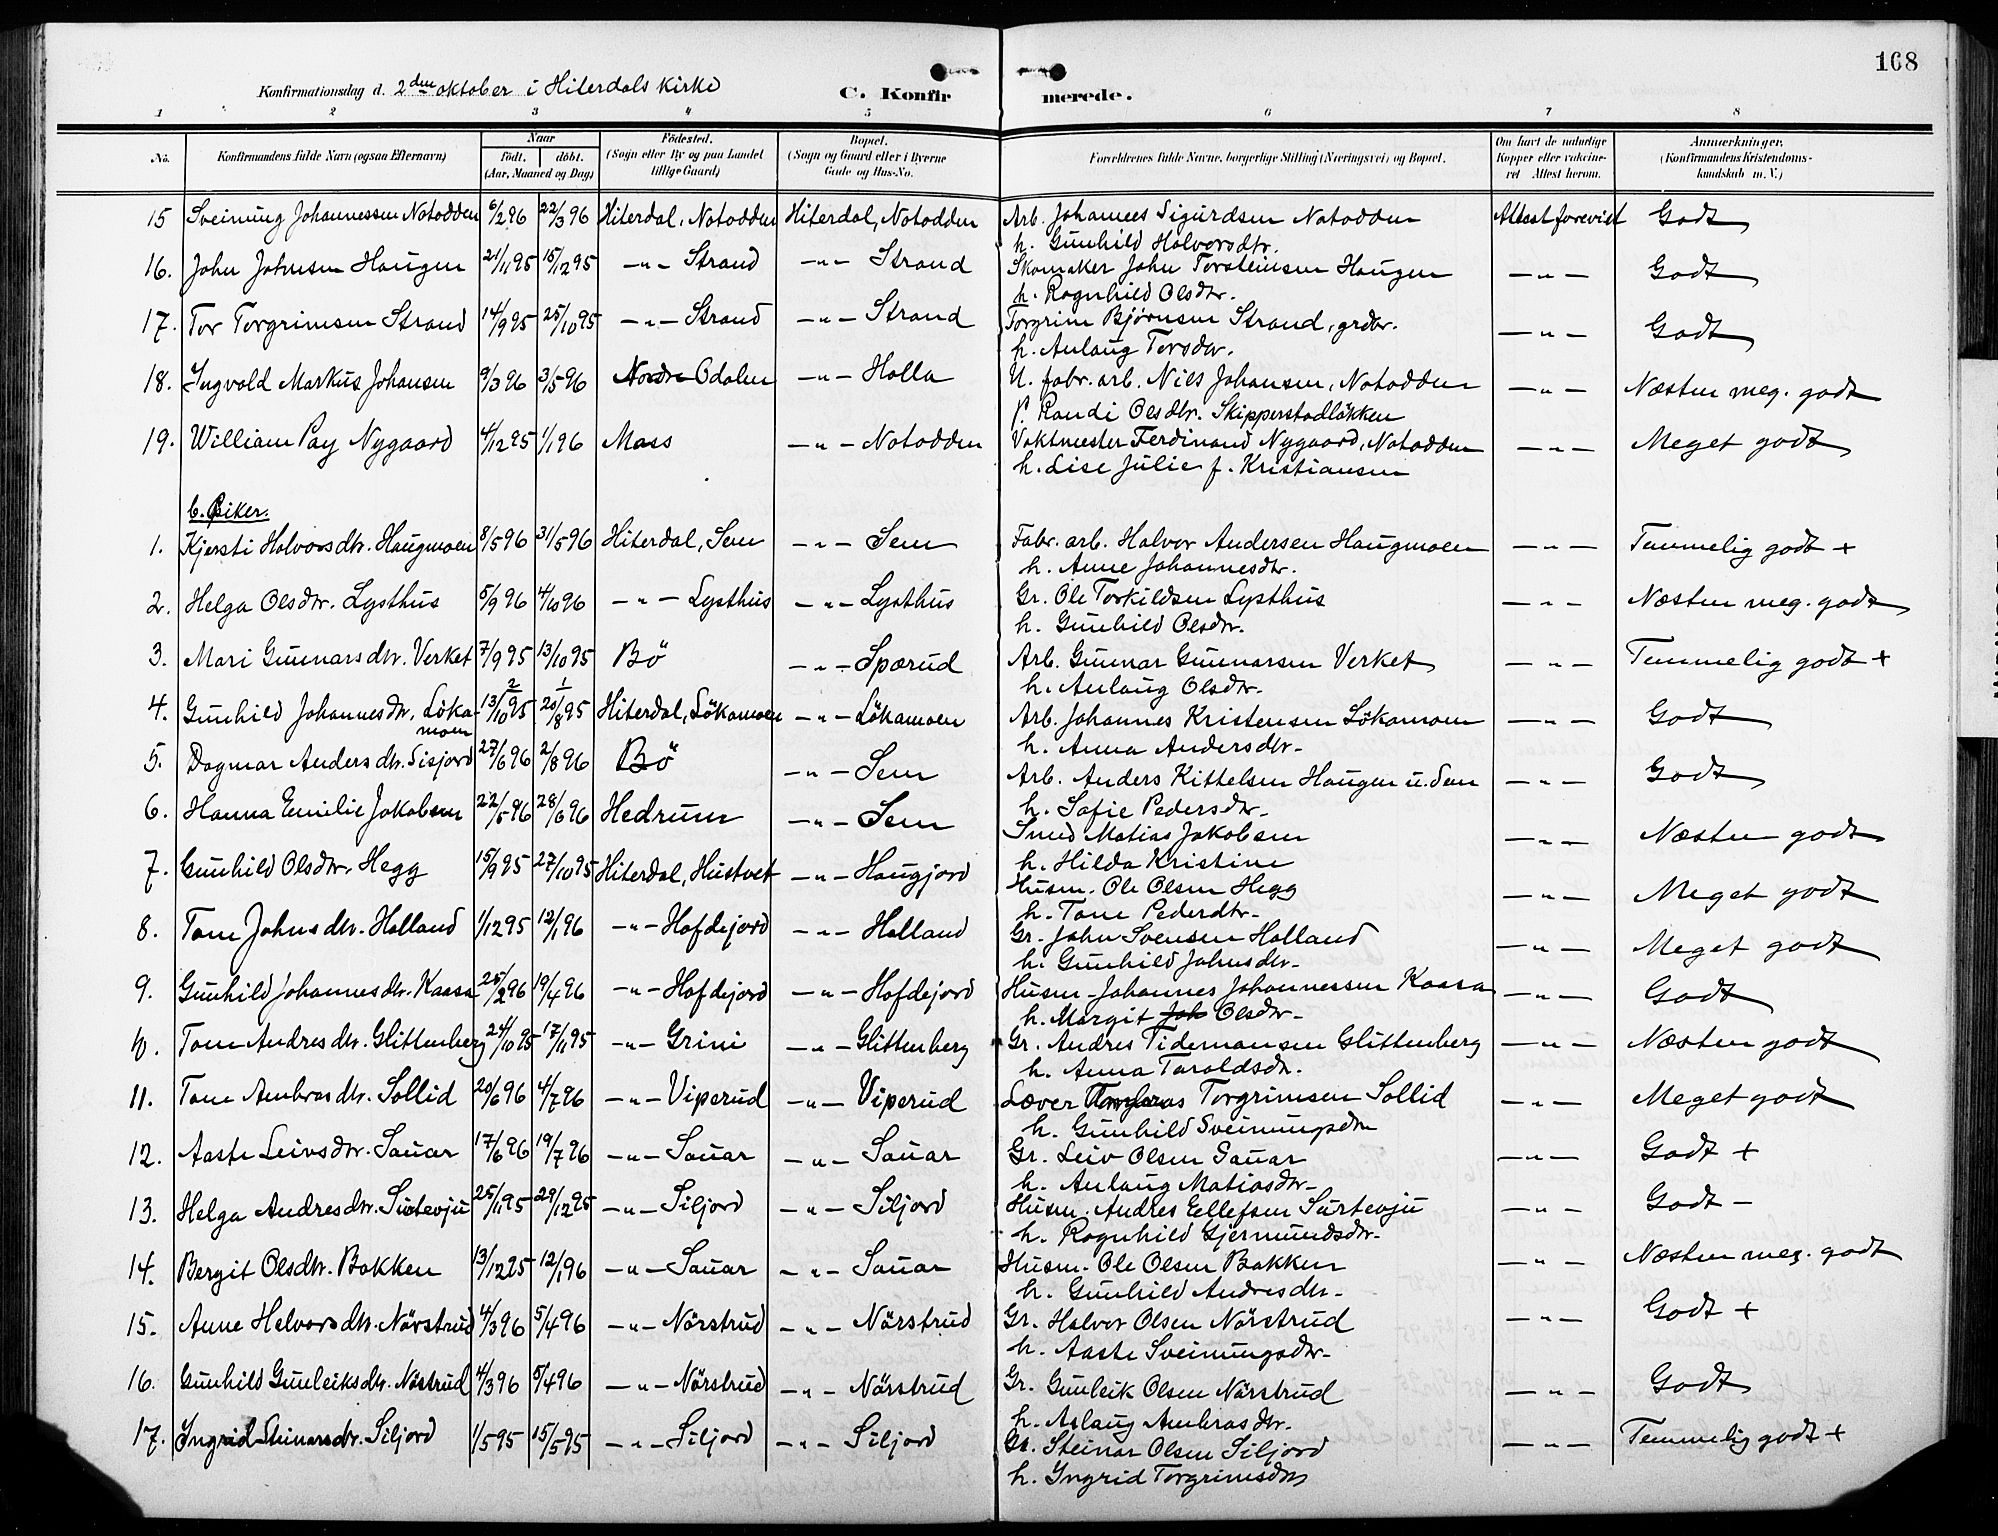 168
Konfirmationsdag d. 2den oktober i Hiterdals kirke
C. Konfirmerede.
1 2 3 4 5 6 7 8
No. Konfirmandens fulde Navn (ogsaa Efternavn) Naar født. døbt. (Aar, Maaned og Dag) Fødested. (Sogn eller By og paa Landet tillige Gaard) Bopæl. (Sogn og Gaard eller i Byerne Gade og Hus-No. Forældrenes fulde Navne, borgerlige Stilling (Næringsvei) og Bopæl. Om havt de naturlige Kopper eller vakcineret Attest herom. Anmærkninger. (Konfirmandens Kristendomskundskab m. V.)
15 Sveinung Johannessen Notodden 6/2 96 22/3 96 Hiterdal, Notodden Hiterdal, Notodden Arb. Johannes Sigurdsen Notodden Attest forevist Godt
h. Gunhild Halvorsdtr.
16. John Johnsen Haugen 21/11 95 15/12 95 -"- Strand -"- Strand Skomaker John Torsteinsen Haugen -"- Godt
h. Ragnhild Olsdtr.
17. Tor Torgrimsen Strand 14/9 95 25/10 95 -"- Strand -"- Strand Torgrim Bjørnsen Strand, grdbr. -"- Godt
h. Anlaug Torsdtr.
18. Ingvald Markus Johansen 9/3 96 3/5 96 Nordre Odalen -"- Holla U. fabr. arb. Nils Johansen, Notodden -"- Næsten meg. godt
p. Randi Olsdtr. Skipperstadløkken
19. William Pay Nygaard 4/12 95 1/1 96 Moss -"- Notodden Vaktmester Ferdinand Nygaard, Notodden -"- Meget godt
h. Lise Julie f. Kristiansen
b. Piker.
1. Kjersti Halvorsdtr. Haugmoen 8/5 96 31/5 96 Hiterdal, Sem -"- Sem Fabr. arb. Halvor Andersen Haugmoen -"- Temmelig godt +
h. Anne Johannesdtr.
2. Helga Olsdtr. Lysthus 5/9 96 4/10 96 -"- Lysthus -"- Lysthus Gr. Ole Torkildsen Lysthus -"- Næsten meg. godt
h. Gunhild Olsdtr.
3. Mari Gunnarsdtr. Verket 7/9 95 13/10 95 Bö -"- Spærud Arb. Gunnar Gunnarsen Verket -"- Temmelig godt +
h. Anlaug Olsdtr.
4. Gunhild Johannesdtr. Lökamoen 13/10 95 20/8 95 Hiterdal, Lökamoen -"- Lökamoen Arb. Johannes Kristensen Lökamoen -"- Godt
h. Anna Andersdtr.
5. Dagmar Andersdtr. Sisjord 27/6 96 2/8 96 Bö -"- Sem Arb. Anders Kittelsen Haugen u. Sem -"- Godt
h. Sofie Pedersdtr.
6. Hanna Emilie Jakobsen 22/5 96 28/6 96 Hedrum -"- Sem Smed Matias Jakobsen -"- Næsten godt
h. Hilda Kristine
7. Gunhild Olsdtr. Hegg 15/9 95 27/10 95 Hiterdal, Hustvet -"- Haugjord Husm. Ole Olsen Hegg -"- Meget godt
h. Tone Pederdtr.
8. Tone Johnsdtr. Holland 1/12 95 12/1 96 -"- Hofdejord -"- Holland Gr. John Svensen Holland -"- Meget godt
h. Gunhild Johnsdtr.
9. Gunhild Johannesdtr. Kaasa 25/2 96 19/4 96 -"- Hofdejord -"- Hofdejord Husm. Johannes Johannessen Kaasa -"- Godt
h. Margit Joh Olsdtr.
10. Tone Andresdtr. Glittenberg 24/10 95 17/11 95 -"- Grini -"- Glittenberg Gr. Andres Tidemansen Glittenberg -"- Næsten godt
h. Anna Taraldsdtr.
11. Tone Ambrosdtr. Sollid 20/6 96 4/7 96 -"- Viperud -"- Viperud Torgrimsen Sollid -"- Meget godt
h. Gunhild Sveinungsdtr
12. Aaste Leivsdtr. Sauar 17/6 96 19/7 96 -"- Sauar -"- Sauar Gr. Leiv Olsen Sauar -"- Godt +
h. Anlaug Matiasdtr.
13. Helga Andresdtr. Surtevju 25/11 95 29/12 95 -"- Siljord -"- Siljord Husm. Andres Ellefsen Surtevju -"- Godt -
h. Ragnhild Gjermundsdtr.
14. Bergit Olsdtr. Bakken 13/12 95 12/1 96 -"- Sauar -"- Sauar Husm. Ole Olsen Bakken -"- Næsten meg. godt
h. Gunhild Andresdtr.
15. Anne Halvorsdtr. Nörstrud 4/3 96 5/4 96 -"- Nörstrud -"- Nörstrud Gr. Halvor Olsen Nörstrud -"- Godt +
h. Aaste Sveinungsdtr.
16. Gunhild Gunleiksdtr. Nöstrud 4/3 96 5/4 96 -"- Nörstrud -"- Nörstrud Gr. Gunleik Olsen Nörstrud -"- Godt
h. Aslaug Ambrosdtr.
17. Ingrid Steinarsdtr. Siljord 1/5 95 15/5 95 -"- Siljord -"- Siljord Gr. Steinar Olsen Siljord -"- Temmelig godt +
h. Ingrid Torgrimsdtr